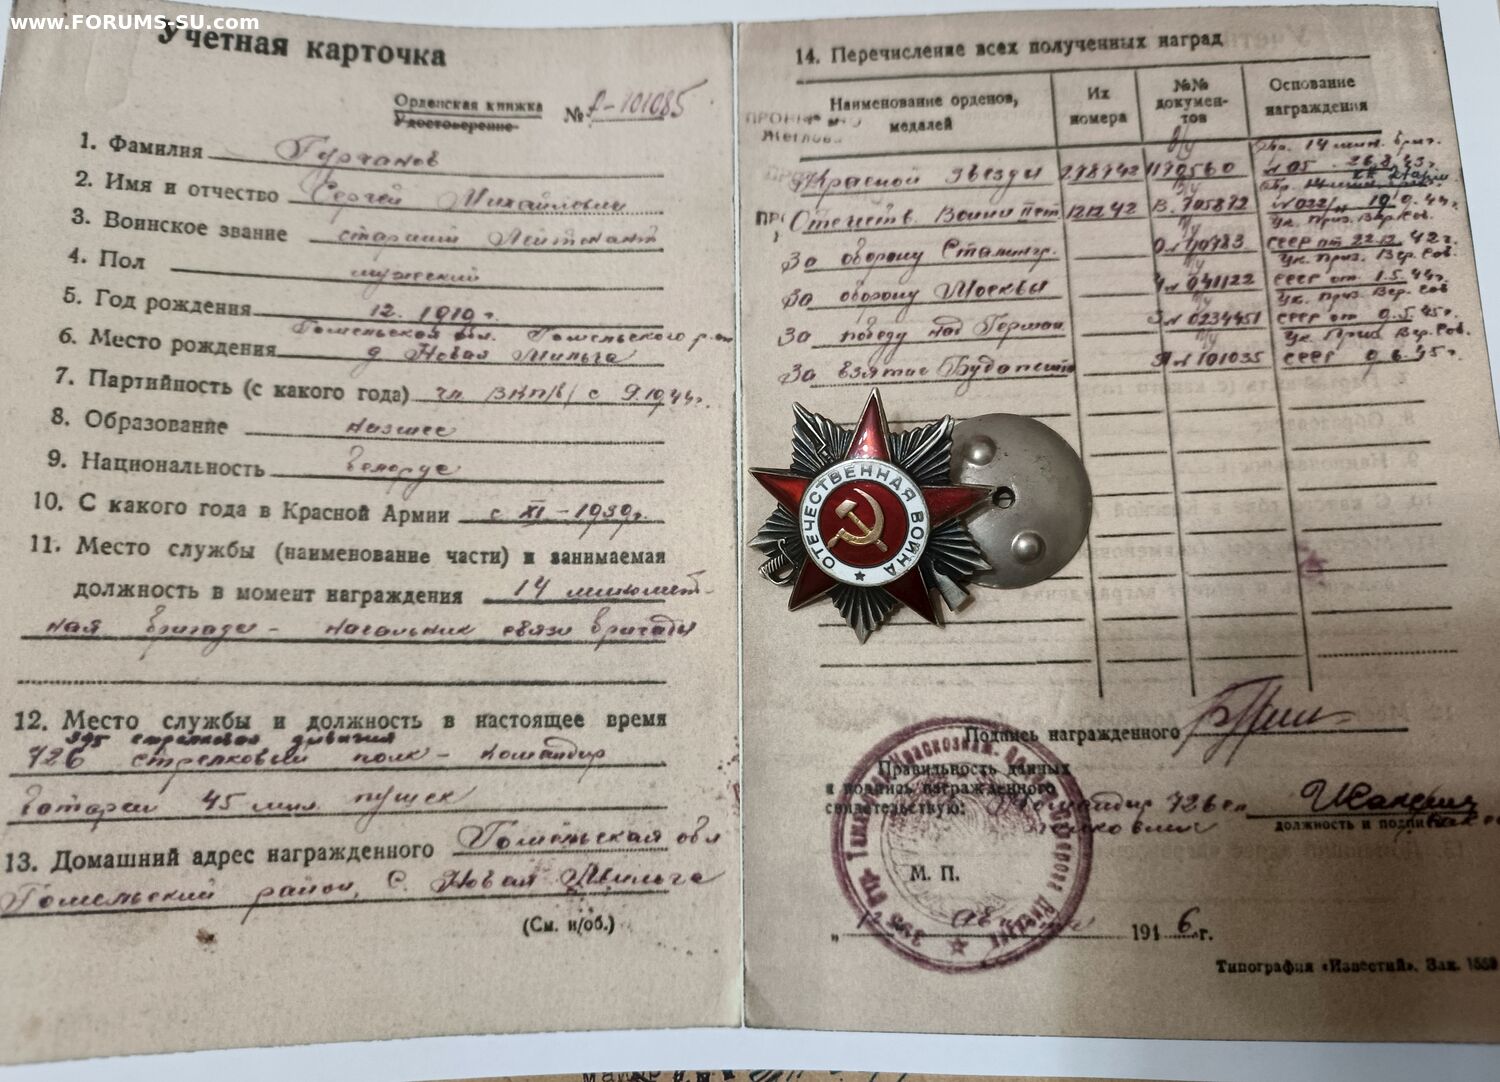 www.FORUMS-SU.com
Учетная карточка
Орденская книжка
Удостоверение
№ А-101085
1. Фамилия
2. Имя и отчество Сергей Михайлович
3. Воинское звание старший лейтенант
4. Пол мужской
5. Год рождения 12. 1919 г.
Гомельская обл. Гомельского р-на
6. Место рождения д Новая Мильча
7. Партийность (с какого года) чл ВКП/б/ с 9.1944г.
8. Образование низшее
9. Национальность белорус
10. С какого года в Красной Армии с XI - 1939г.
11. Место службы (наименование части) и занимаемая
должность в момент награждения 14 миномет-
ная бригада - начальник связи бригады
12. Место службы и должность в настоящее время
395 стрелковая дивизия
726 стрелковый полк - командир
батареи 45 мм. пушек
13. Домашний адрес награжденного Гомельская обл
Гомельский район, С. Новая Мильча
(См. н/об.)
14. Перечисление всех полученных наград
Наименование орденов, медалей
Их номера
№№ документов
Основание награждения
Красной Звезды 278742 1170560 14 мин. бриг. №05 26.8.43г.
Отечеств. Войны 121242 В. 705872 10.9.44г.
За оборону Сталингр. 40783 Ук. През. Вер. Сов. СССР от 22.12.42г.
За оборону Москвы 041122 Ук. През. Вер. Сов. СССР от 1.5.44г.
За победу над Герман 0234451 Ук. През. Вер. Сов СССР от 9.5.45г.
За взятие Будапешта А №101035 Ук. През Вер. Сов. СССР 9.6.45г.
ОТЕЧЕСТВЕННАЯ ВОЙНА
Подпись награжденного
Правильность данных
и подпись награжденного
свидетельствую: Командир 726 сп
полковник
должность и подпись
М. П.
" августа 1946 г.
Типография «Известий». Зак. 1559